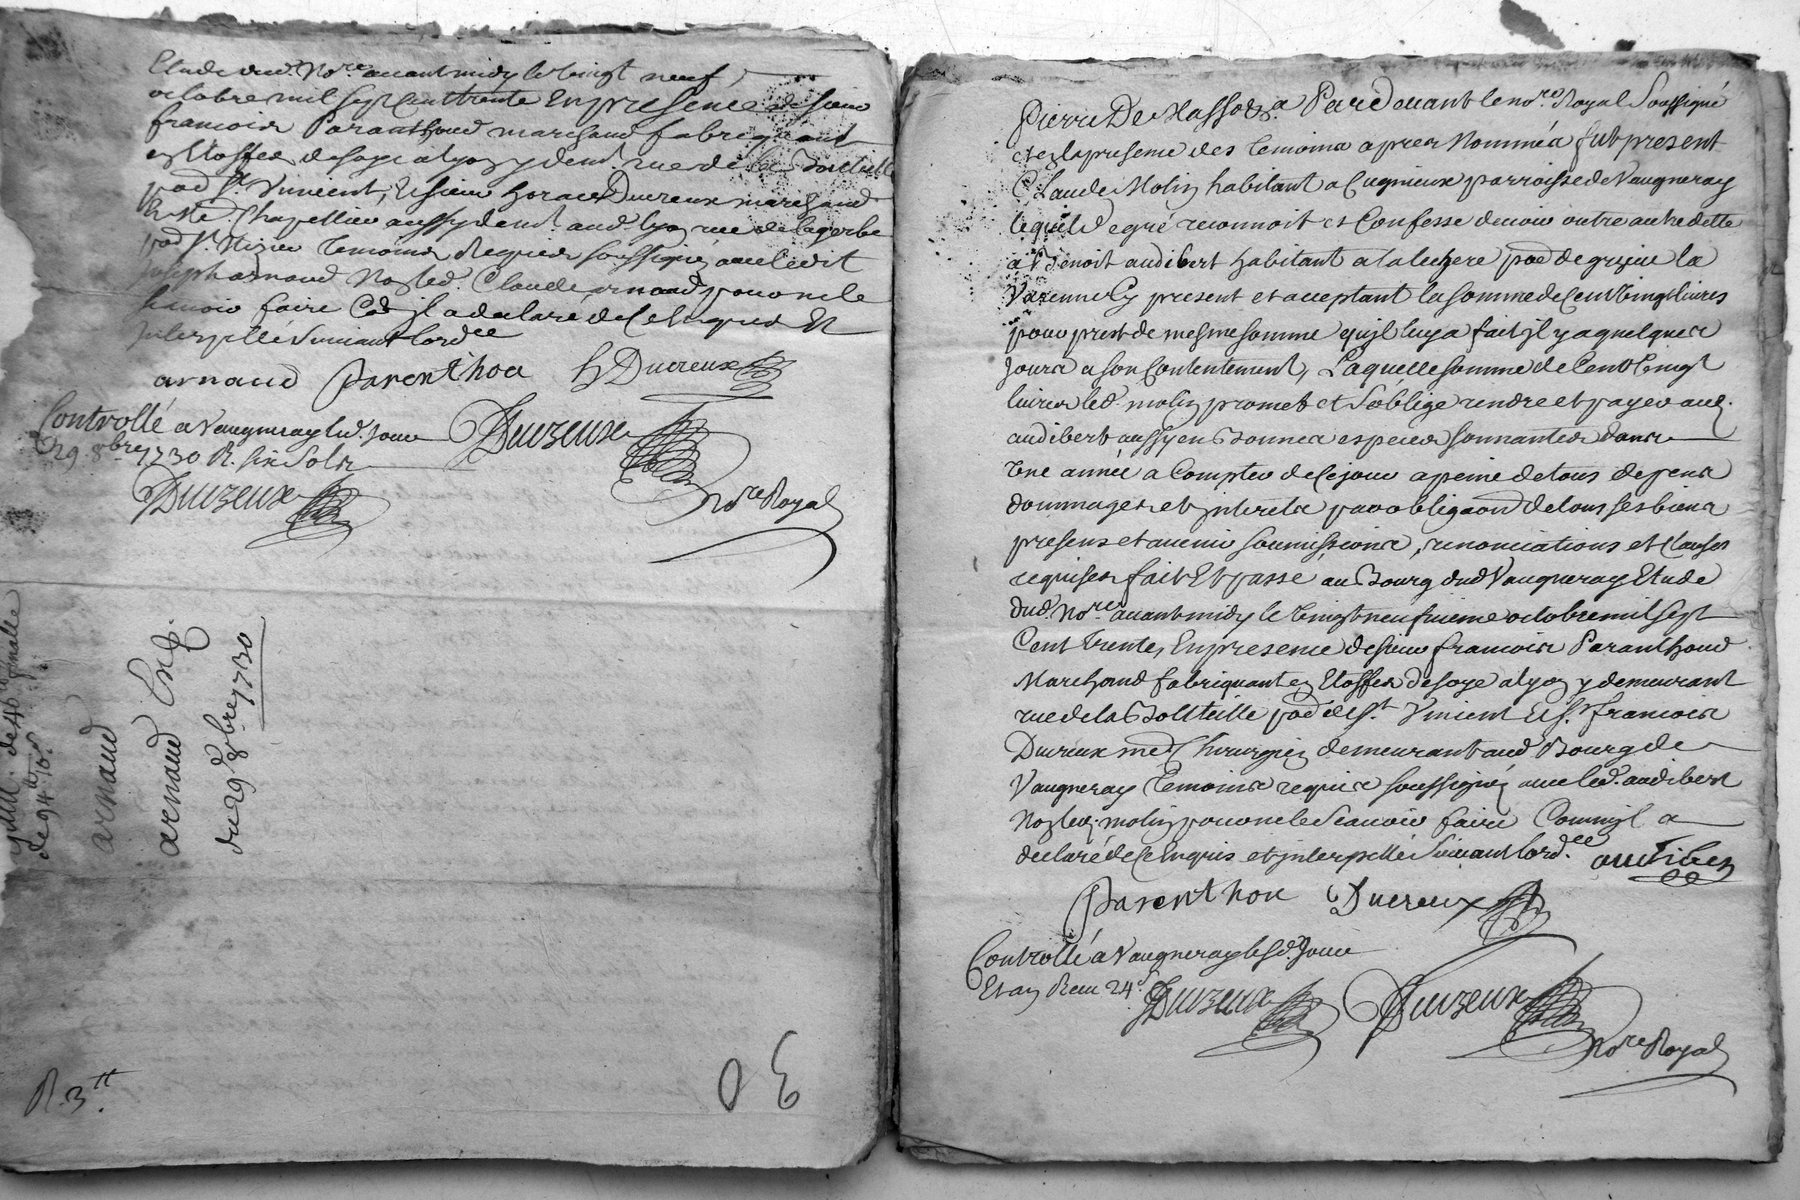 Etude dud. Nore. avant midy le vingt neuf
octobre mil sept cent trente En presence de sieur
francois Paranthoud marchand fabriquant
en Etoffes de soye a Lyon y demt. rue de la Boutielle
pad St. Vincent, et sieur horace Ducreux marchand
Chapellier aussy demt. aud. Lyon rue de la gerbe
pad St. Nizier temoins Requis soussignés avec ledit
Joseph arnaud Non led. Claude arnaud pour ne le
scavoir faire Co il a declaré de Ce Enquis Et
Interpellé Suivant lordce
arnaud Parenthou h Ducreux
Controllé a Vaugneray led. Jour
29 8bre 1730 R. six Sols
Duvzeux
Duvzeux
Nore Royal
arnaud
arnaud
du 29e 8bre 1730
R. 3tt
Pierre De Massod. Pardevant le nore. Royal Soussigné
et en la presence des temoins apres Nommés fut present
Claude Molin habitant a Cugnieux parroisse de Vaugneray
lequel de gré reconnoit et Confesse devoir outre autre dette
a Benoit audibert habitant a la luzere pad de grezieu la
Varenne Cy present et acceptant la somme de Cent vingt livres
pour prest de mesme somme quil luy a fait il y a quelques
Jours a son Contentement, Laquelle somme de Cent vingt
livres led. molin promet et Soblige rendre et payer aud.
audibert aussy en Bonnes especes sonnantes dans
Une année a Compter de Ce jour a peine de tous depens
dommages et interets par obligaon de tous ses biens
presens et avenir soumissions, renonciations et Clauses
requises fait Et passé au Bourg dud Vaugneray Etude
dud. Nore. avant midy le vingt neufvieme octobre mil sept
Cent trente, En presence de sieur francois Paranthoud
Marchand fabriquant en Etoffes de soye a Lyon y demeurant
rue de la Boutteille pad de St. Vincent Et Sr. francois
Ducreux me Chirurgien demeurant aud Bourg de
Vaugneray temoins requis soussignés avec led. audibert
Non led. molin pour ne le Scavoir faire Comm il a
declaré de Ce Enquis et interpellé Suivant lordce. audiber
Parenthou Ducreux
Controllé a Vaugneray lesd. Jour
Et an Recu 24s.
Duvzeux Duvzeux
Nore Royal